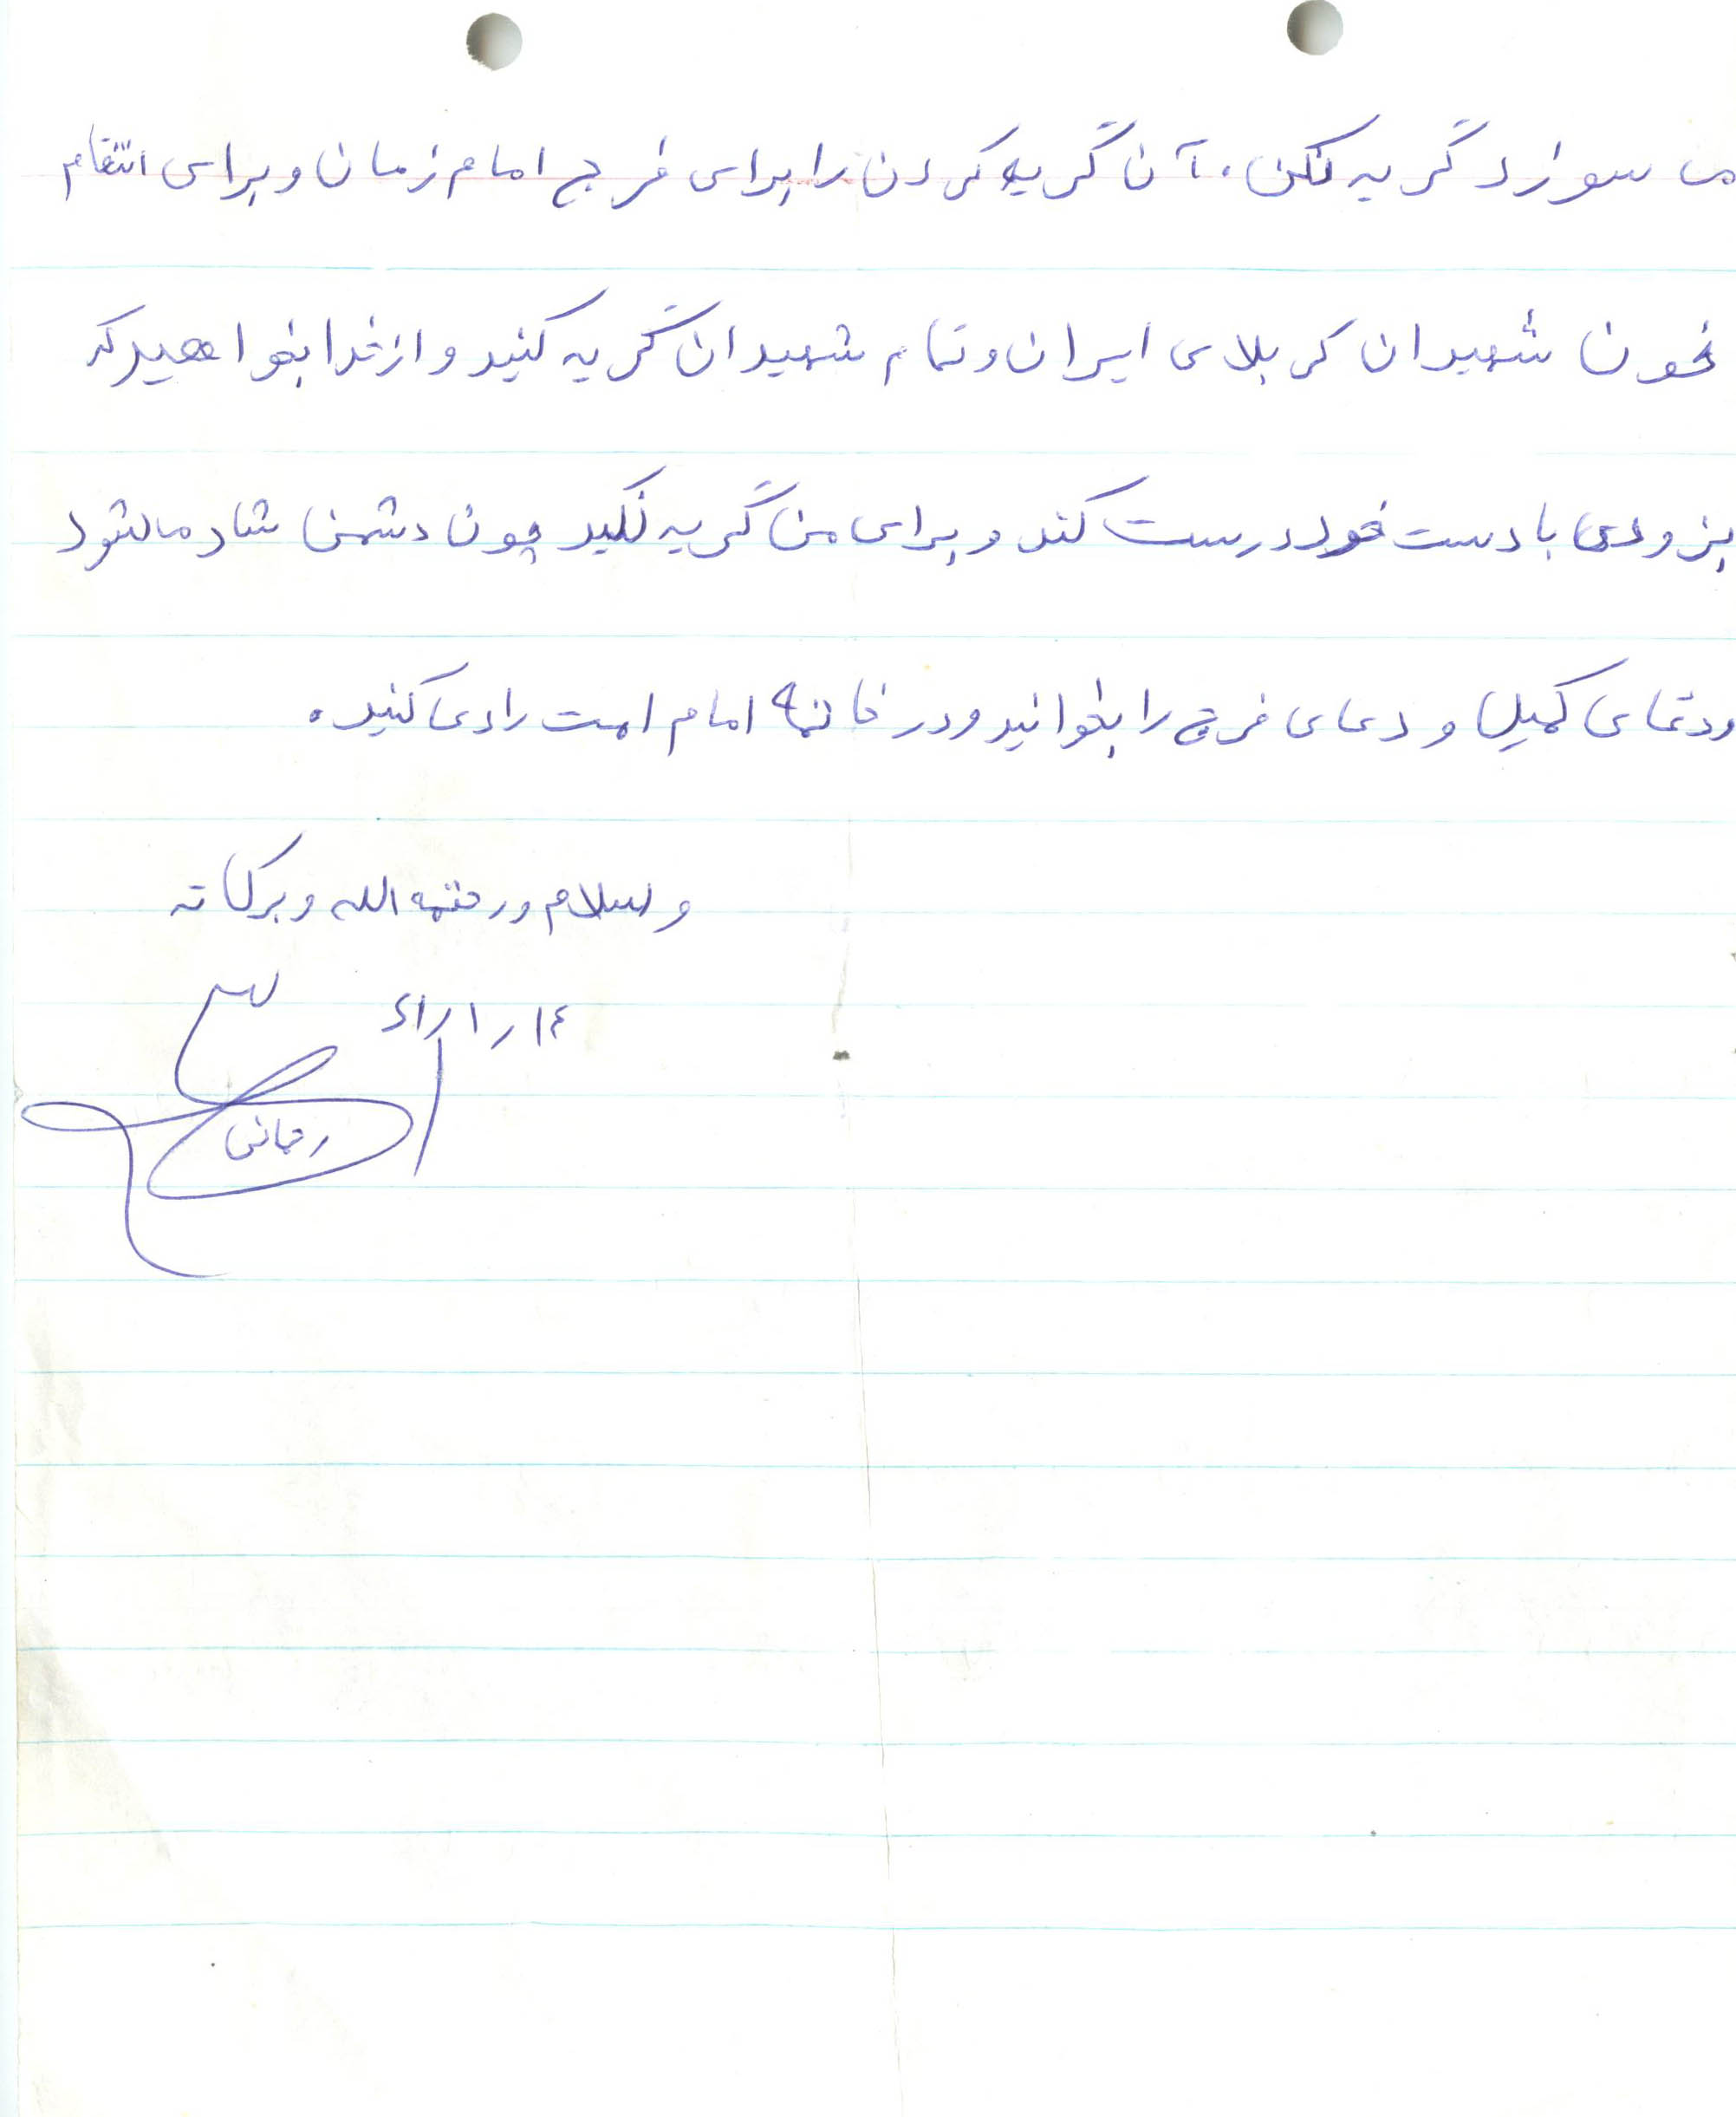 می سوزاند گریه نکن، آن گریه کردن را برای فرج امام زمان و برای انتقام
خون شهیدان کربلای ایران و تمام شهیدان گریه کنید و از خدا بخواهید که
بزودی با دست خود درست کند و برای من گریه نکنید چون دشمن شاد میشود
ودعای کمیل و دعای فرج را بخوانید و در خاتمه امام امت را دعا کنید.
والسلام ورحمته الله وبرکاته
رحمانی